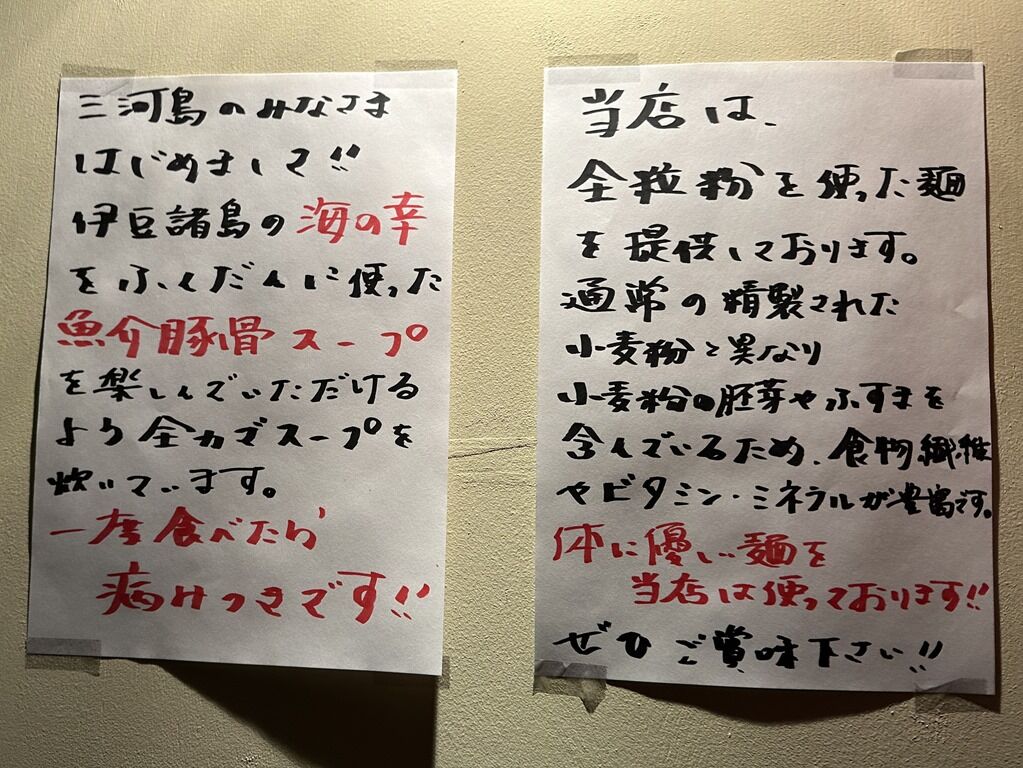 三河島のみなさま
はじめまして!!
伊豆諸島の海の幸
をふんだんに使った
魚介豚骨スープ
を楽しんでいただける
よう全力でスープを
炊いています。
一度食べたら
病みつきです!!
当店は、
全粒粉を使った麺
を提供しております。
通常の精製された
小麦粉と異なり
小麦粉の胚芽やふすまを
含んでいるため、食物繊維
やビタミン・ミネラルが豊富です。
体に優しい麺を
当店は使っております!!
ぜひご賞味下さい!!